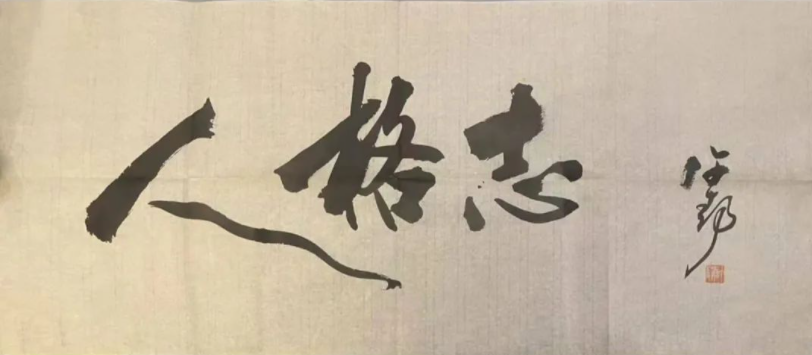 人格志